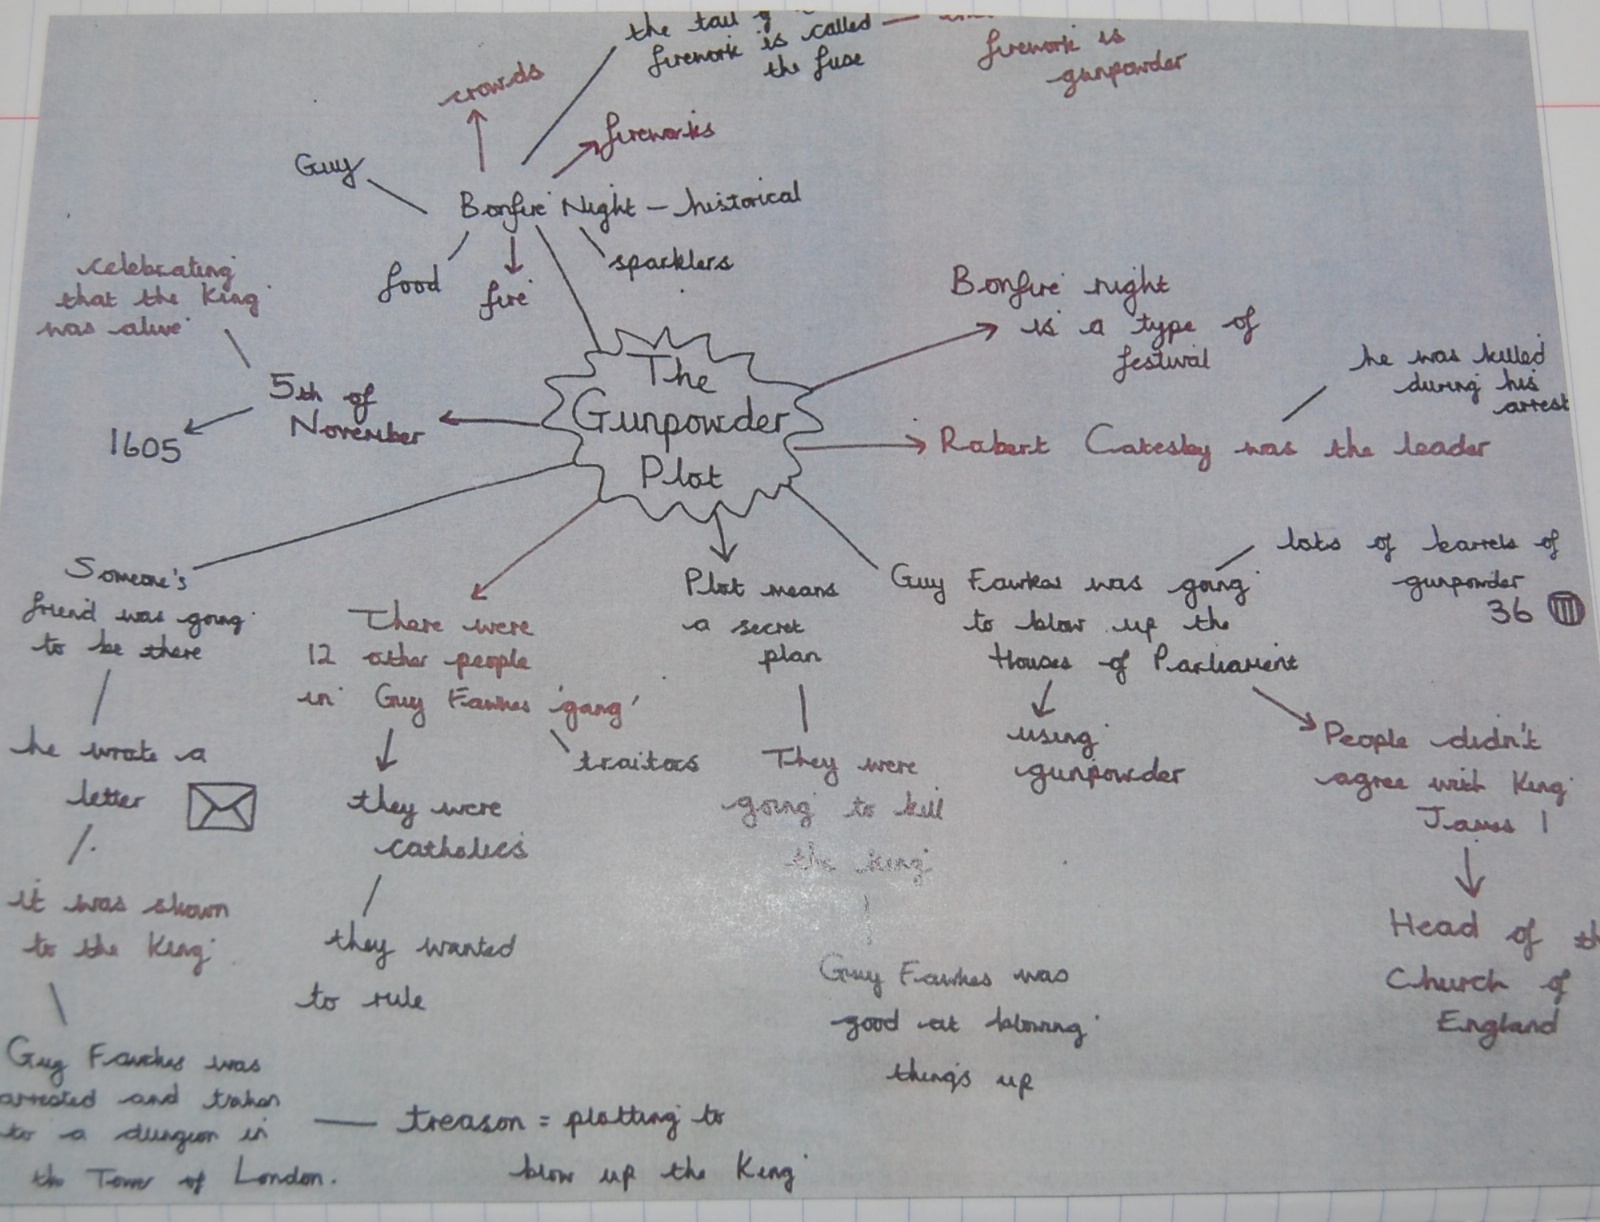 the tail
firework is called
the fuse
firework is
gunpowder
crowds
fireworks
Guy
Bonfire Night – historical
food
fire
sparklers
celebrating
that the King
was alive
5th of
November
1605
The
Gunpowder
Plot
Bonfire night
is a type of
festival
he was killed
during his
arrest
Robert Catesby was the leader
Someone's
friend was going
to be there
he wrote a
letter
it was shown
to the King
Guy Fawkes was
arrested and taken
to a dungeon in
the Tower of London.
treason = plotting to
blow up the King
There were
12 other people
in Guy Fawkes 'gang'
traitors
they were
catholics
they wanted
to rule
Plot means
a secret
plan
They were
going to kill
the king
Guy Fawkes was
good at blowing
things up
Guy Fawkes was going
to blow up the
Houses of Parliament
lots of barrels of
gunpowder
36
using
gunpowder
People didn't
agree with King
James I
Head of
Church of
England